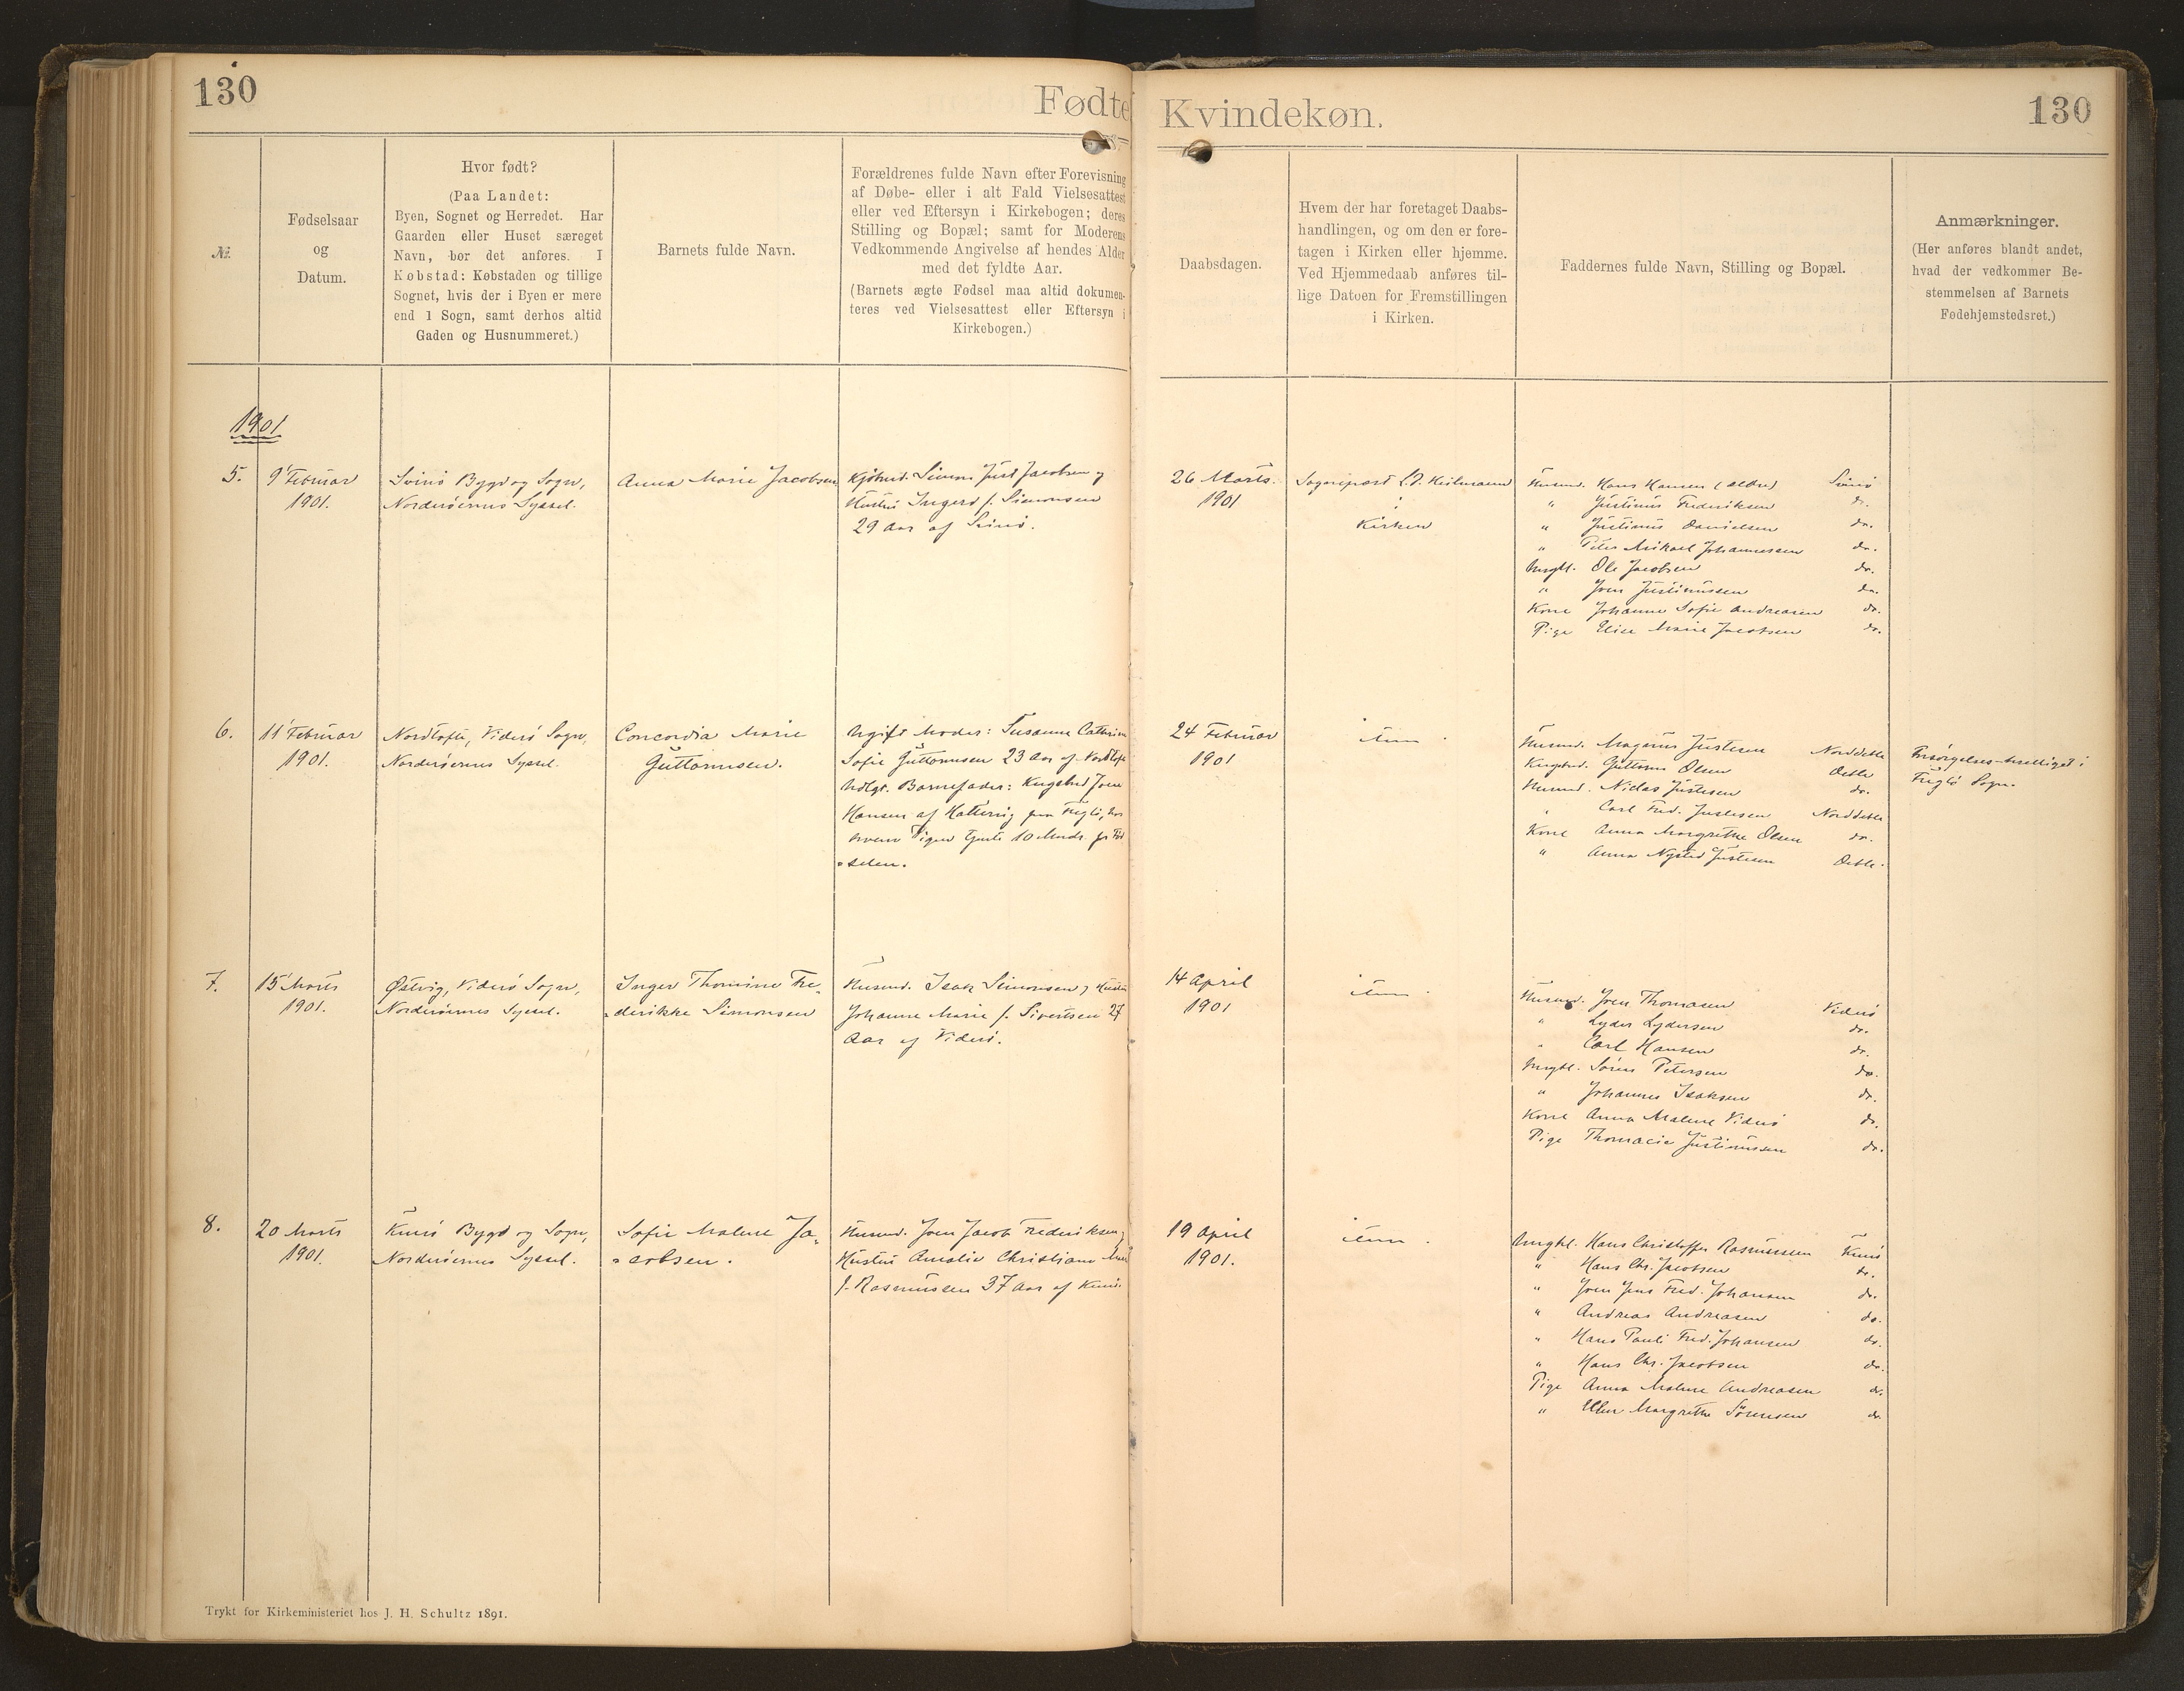 130
Fødte
Kvindekøn.
130
№.
Fødselsaar
og
Datum.
Hvor født?
(Paa Landet:
Byen, Sognet og Herredet. Har
Gaarden eller Huset særeget
Navn, bør det anføres. I
Købstad: Købstaden og tillige
Sognet, hvis der i Byen er mere
end 1 Sogn, samt derhos altid
Gaden og Husnummeret.)
Barnets fulde Navn.
Forældrenes fulde Navn efter Forevisning
af Døbe- eller i alt Fald Vielsesattest
eller ved Eftersyn i Kirkebogen; deres
Stilling og Bopæl; samt for Moderens
Vedkommende Angivelse af hendes Alder
med det fyldte Aar.
(Barnets ægte Fødsel maa altid dokumen-
teres ved Vielsesattest eller Eftersyn i
Kirkebogen.)
Daabsdagen.
Hvem der har foretaget Daabs-
handlingen, og om den er fore-
tagen i Kirken eller hjemme.
Ved Hjemmedaab anføres til-
lige Datoen for Fremstillingen
i Kirken.
Faddernes fulde Navn, Stilling og Bopæl.
Anmærkninger.
(Her anføres blandt andet,
hvad der vedkommer Be-
stemmelsen af Barnets
Fødehjemstedsret.)
1901
5.
9' Februar
1901.
Svinö Bygd og Sogn,
Norderöernes Syssel.
Anna Marie Jacobsen
Simon Just Jacobsen og
Hustru Ingerd f. Simonsen
29 Aar af Svinö.
26 Marts.
1901
Sognepræst Heilmann
i
Kirken
Husmd. Hans Hansen (ældre) Svinö
" Justinus Frederiksen do.
" Justinus Danielsen do.
" Peter Mikael Johannessen do.
Ungkl. Ole Jacobsen do.
" Joen Justinussen do.
Kone Johanne Sofie Andreasen do.
Pige Elise Marie Jacobsen do.
6.
11' Februar
1901.
Nordtofte, Viderö Sogn,
Norderöernes Syssel.
Concordia Marie
Guttormsen.
Ugift Moder: Susanne Cathrine
Sofie Guttormsen 23 Aar af Nordtofte
Udlgt. Barnefader: Joen
Hansen af Hattervig paa Fuglö, hos
hvem Pigen tjente 10 Mndr. før Fød
=selen.
24 Februar
1901
item.
Husmd. Magnus Justesen Norddeble
Guttorm Olsen Deble
Husmd. Niclas Justesen do.
" Carl Fred. Justesen Norddeble
Kone Anna Margrethe Olsen do.
" Anna Justesen Deble.
i
Fuglö Sogn.
7.
15' Marts
1901.
Østvig, Viderö Sogn,
Norderöernes Syssel.
Inger Thomine Fre=
=derikke Simonsen
Husmd. Isak Simonsen og Hustru
Johanne Marie f. Sivertsen 27
Aar af Viderö.
14 April
1901
item.
Husmd. Joen Thomasen Viderö
" Lyder Lydersen do.
" Carl Hansen do.
Ungkl. Sören Petersen do.
" Johannes Isaksen do.
Kone Anna Malene Viderö do.
Pige Thomacia Justinussen do.
8.
20 Marts
1901.
Kunö Bygd og Sogn,
Norderöernes Syssel.
Sofie Malene Ja=
=cobsen.
Husmd. Joen Jacob Frederiksen og
Hustru Amalie Christiane
f. Rasmussen 37 Aar af Kunö.
19 April
1901.
item.
Ungkl. Hans Christoffer Rasmussen Kunö
" Hans Chr. Jacobsen do.
" Joen Jens Fred. Johansen do.
" Andreas Andreasen do.
" Hans Pauli Fred. Johansen do.
" Hans Chr. Jacobsen do.
Pige Anna Malene Andreasen do.
" Ellen Margrethe Sörensen do.
Trykt for Kirkeministeriet hos J. H. Schultz 1891.